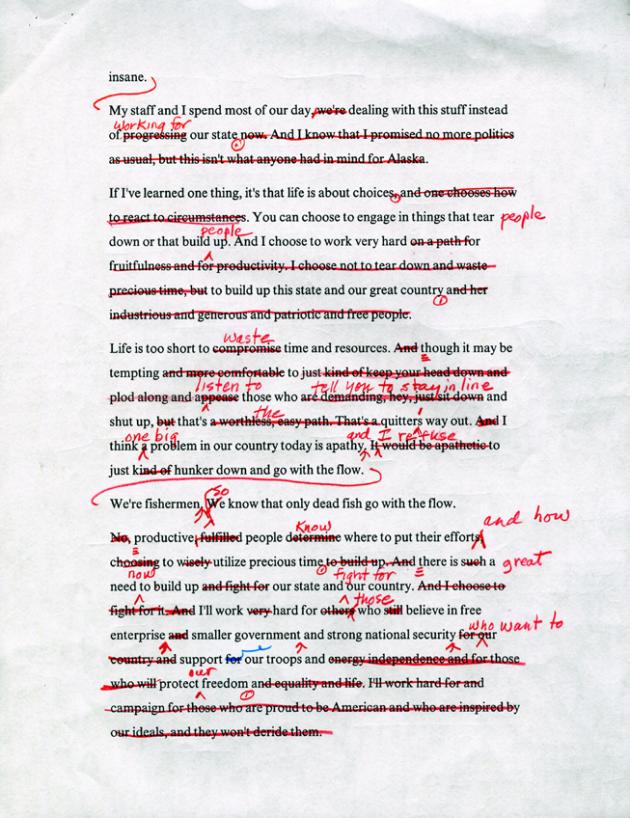 insane.
My staff and I spend most of our day, we're dealing with this stuff instead
working for
of progressing our state now. And I know that I promised no more politics
as usual, but this isn't what anyone had in mind for Alaska.
If I've learned one thing, it's that life is about choices, and one chooses how
to react to circumstances. You can choose to engage in things that tear people
people
down or that build up. And I choose to work very hard on a path for
fruitfulness and for productivity. I choose not to tear down and waste
precious time, but to build up this state and our great country and her
industrious and generous and patriotic and free people.
waste
Life is too short to compromise time and resources. And though it may be
tempting and more comfortable to just kind of keep your head down and
listen to tell you to stay in line
plod along and appease those who are demanding, hey, just sit down and
the
shut up, but that's a worthless, easy path. That's a quitters' way out. And I
one big and I refuse
think a problem in our country today is apathy. It would be apathetic to
just kind of hunker down and go with the flow.
so
We're fishermen. We know that only dead fish go with the flow.
and how
Know
No, productive, fulfilled people determine where to put their efforts,
choosing to wisely utilize precious time to build up. And there is such a great
now fight for
need to build up and fight for our state and our country. And I choose to
those
fight for it. And I'll work very hard for others who still believe in free
who want to
enterprise and smaller government and strong national security for our
country and support for our troops and energy independence and for those
our
who will protect freedom and equality and life. I'll work hard for and
campaign for those who are proud to be American and who are inspired by
our ideals, and they won't deride them.